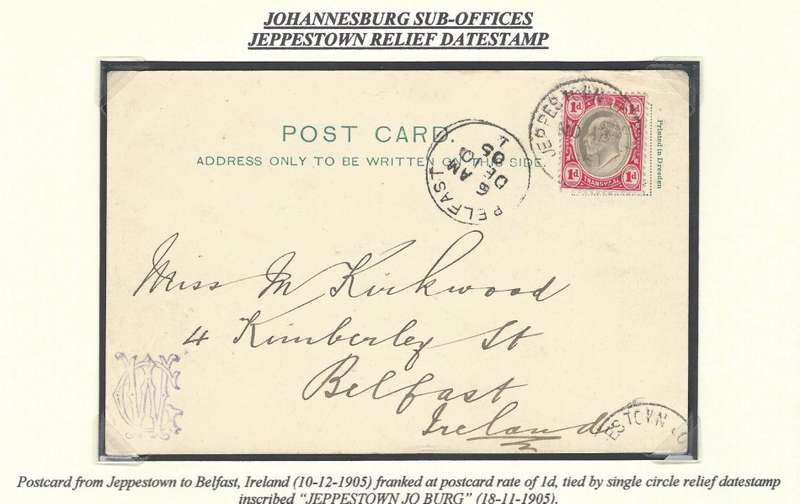 JOHANNESBURG SUB-OFFICES
JEPPESTOWN RELIEF DATESTAMP
POST CARD.
ADDRESS ONLY TO BE WRITTEN ON THIS SIDE.
BELFAST
6 AM
DE 10
05
JEPPESTOWN
NO
1d 1d
1d TRANSVAAL 1d
Printed in Dresden
Miss M Kirkwood
4 Kimberley St
Belfast
Ireland
ESTOWN JO
Postcard from Jeppestown to Belfast, Ireland (10-12-1905) franked at postcard rate of 1d, tied by single circle relief datestamp
inscribed “JEPPESTOWN JO BURG” (18-11-1905).